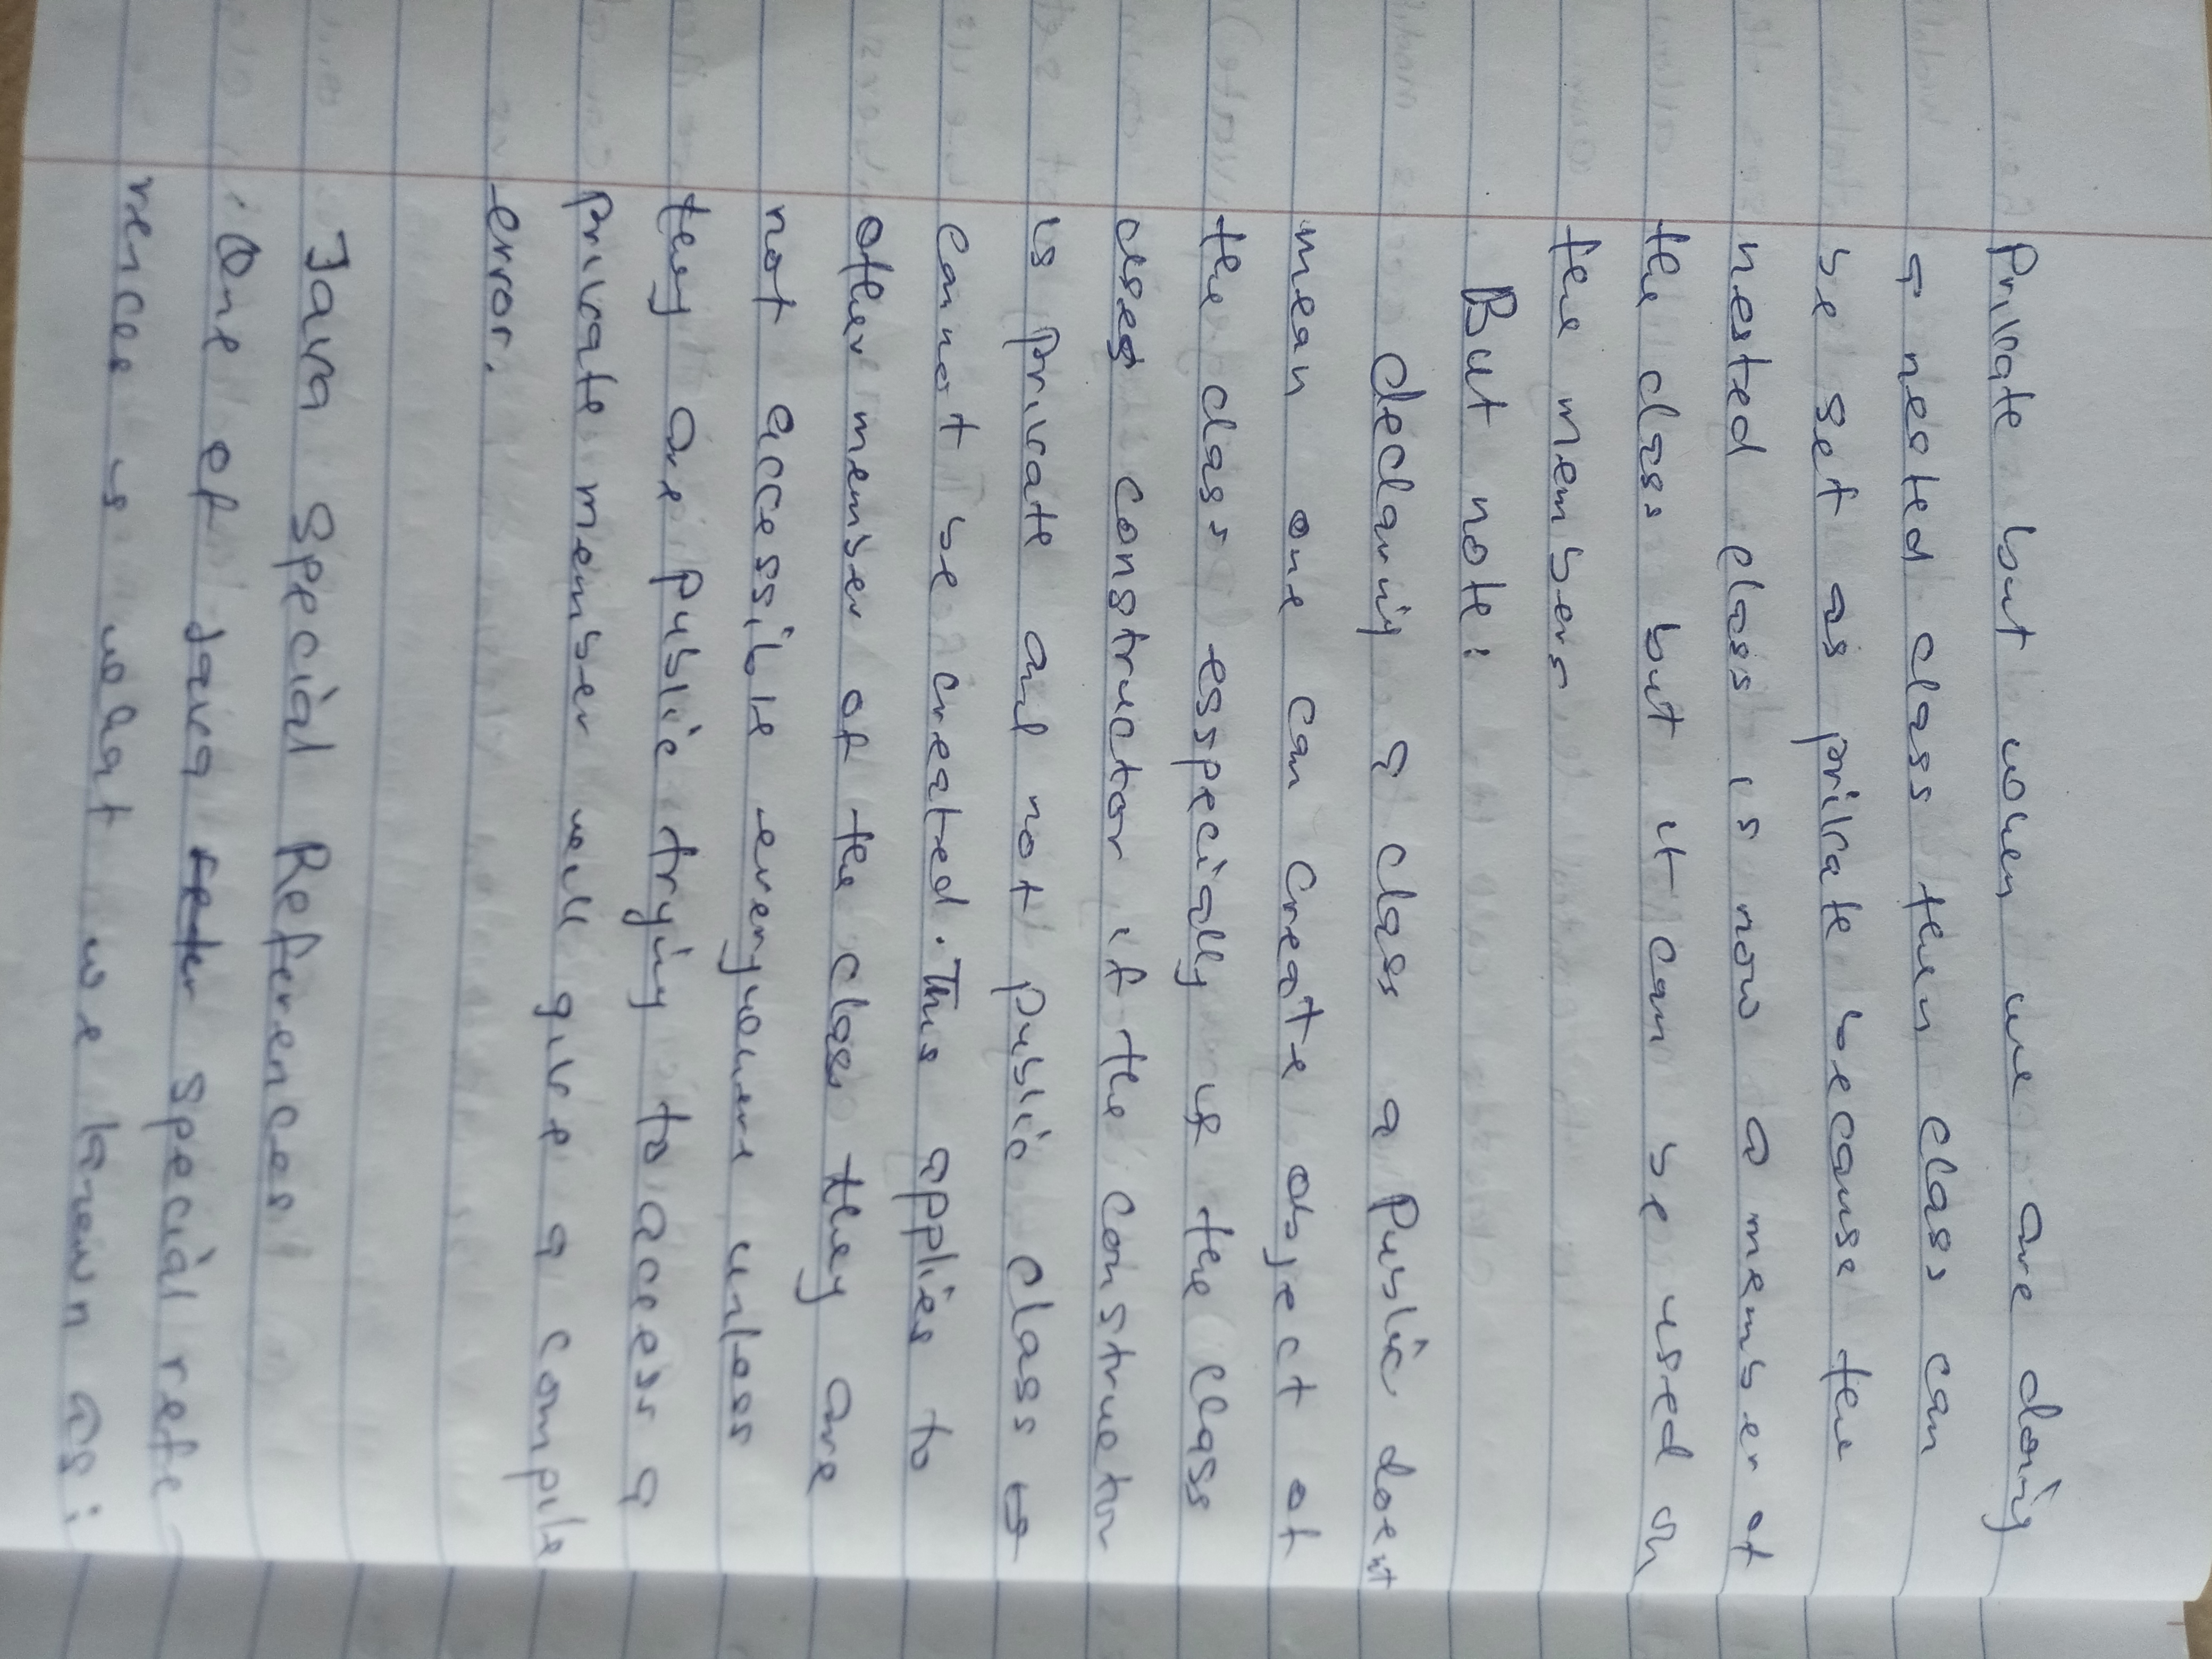 Private but when we are doing
a nested class then class can
be set as private because the
nested class is now a member of
the class but it can be used on
the members
But note:
declaring a class a Public doesnt
mean one can create object of
the class especially if the class
uses constructor if the constructor
is private and not public class
cannot be created. This applies to
other member of the class they are
not accessible everywhere unless
they are public trying to access a
private member will give a compile
error.
Java Special References
One of Java special refe-
rences is what we known as: